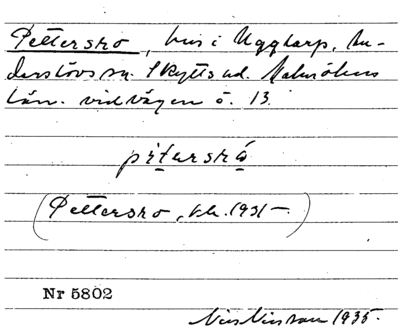 Pettersro, hus i Uggtarp, An-
derslövs sn. Skytts hd. Malmöhus
län. vid vägen ö. 13.
pitersrå
(Pettersro, tel. 1931–)
Nr 5802
Nils Nilsson 1935.